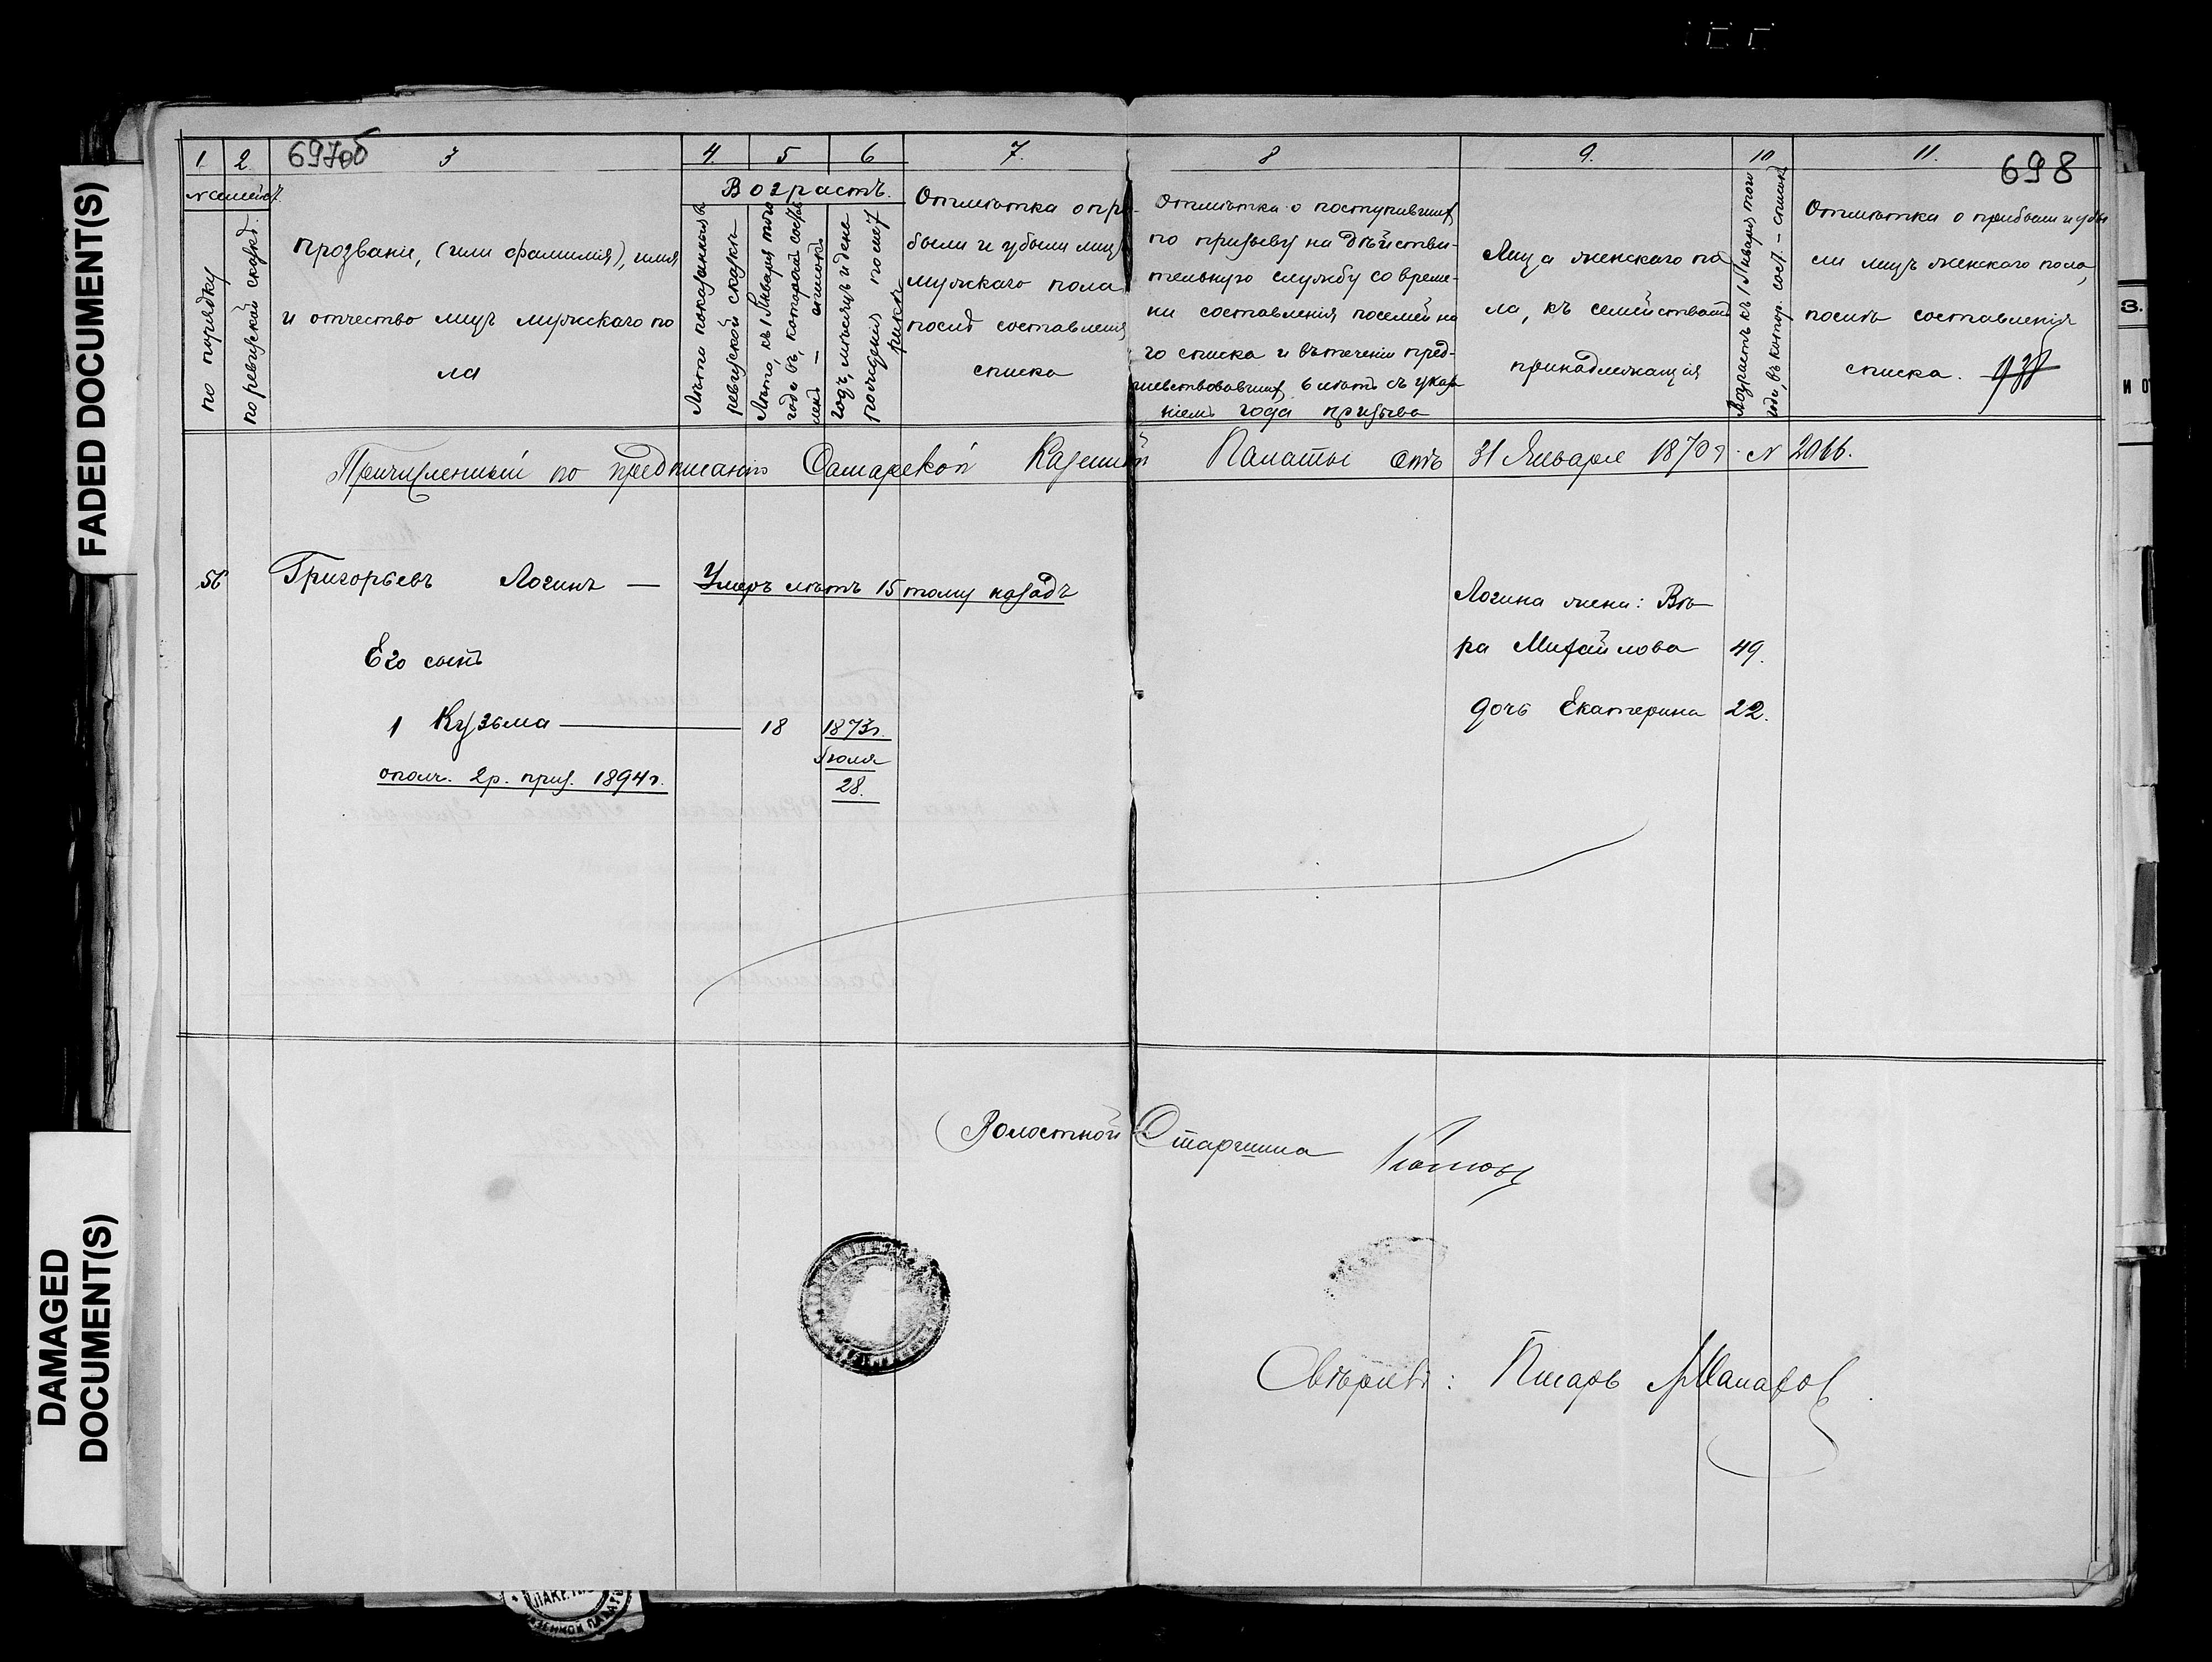 FADED DOCUMENT(S)
DAMAGED DOCUMENT(S)
697об
698
1 2 3 4 5 6 7. 8 9. 10 11.
№ семейст.
по порядку
по ревизской сказкѣ.
Прозваніе, (или фамилія), имя
и отчество лицъ мужскаго по
ла
Возрастъ.
Лѣта показанныя въ
ревизской сказкѣ
Лѣта, къ 1 Января того
года въ, которой состав
ленъ — списокъ
годъ, мѣсяцъ и день
рожденія по мет
рикѣ
Отмѣтка о при-
были и убыли лицъ
мужскаго пола
послѣ составленія
списка
Отмѣтка о поступившихъ
по призыву на дѣйстви-
тельную службу со време-
ни составленія посемейна
го списка и въ теченіи пред-
шевствовавшихъ 6 лѣтъ съ указа
ніемъ года призыва
Лица женскаго по
ла, къ семействамъ
принадлежащія
Возрастъ къ 1 Января того
года, въ котор. сост. — списокъ
Отмѣтка о прибыли и убы
ли лицъ женскаго пола,
послѣ составленія
списка.
Причисленный по предписанію Самарской Казенной Палаты отъ 31 Января 1870 г. № 2066.
56 Григорьевъ Логинъ — Умеръ лѣтъ 15 тому назадъ
Логина жена: Вѣ-
Его сынъ
ра Михайлова 49.
1 Кузьма — 18 1873 г.
дочь Екатерина 22.
Іюля
ополч. 2 р. приз. 1894 г.
28.
Волостной Старшина
Свѣрялъ: Писарь
З.
И О